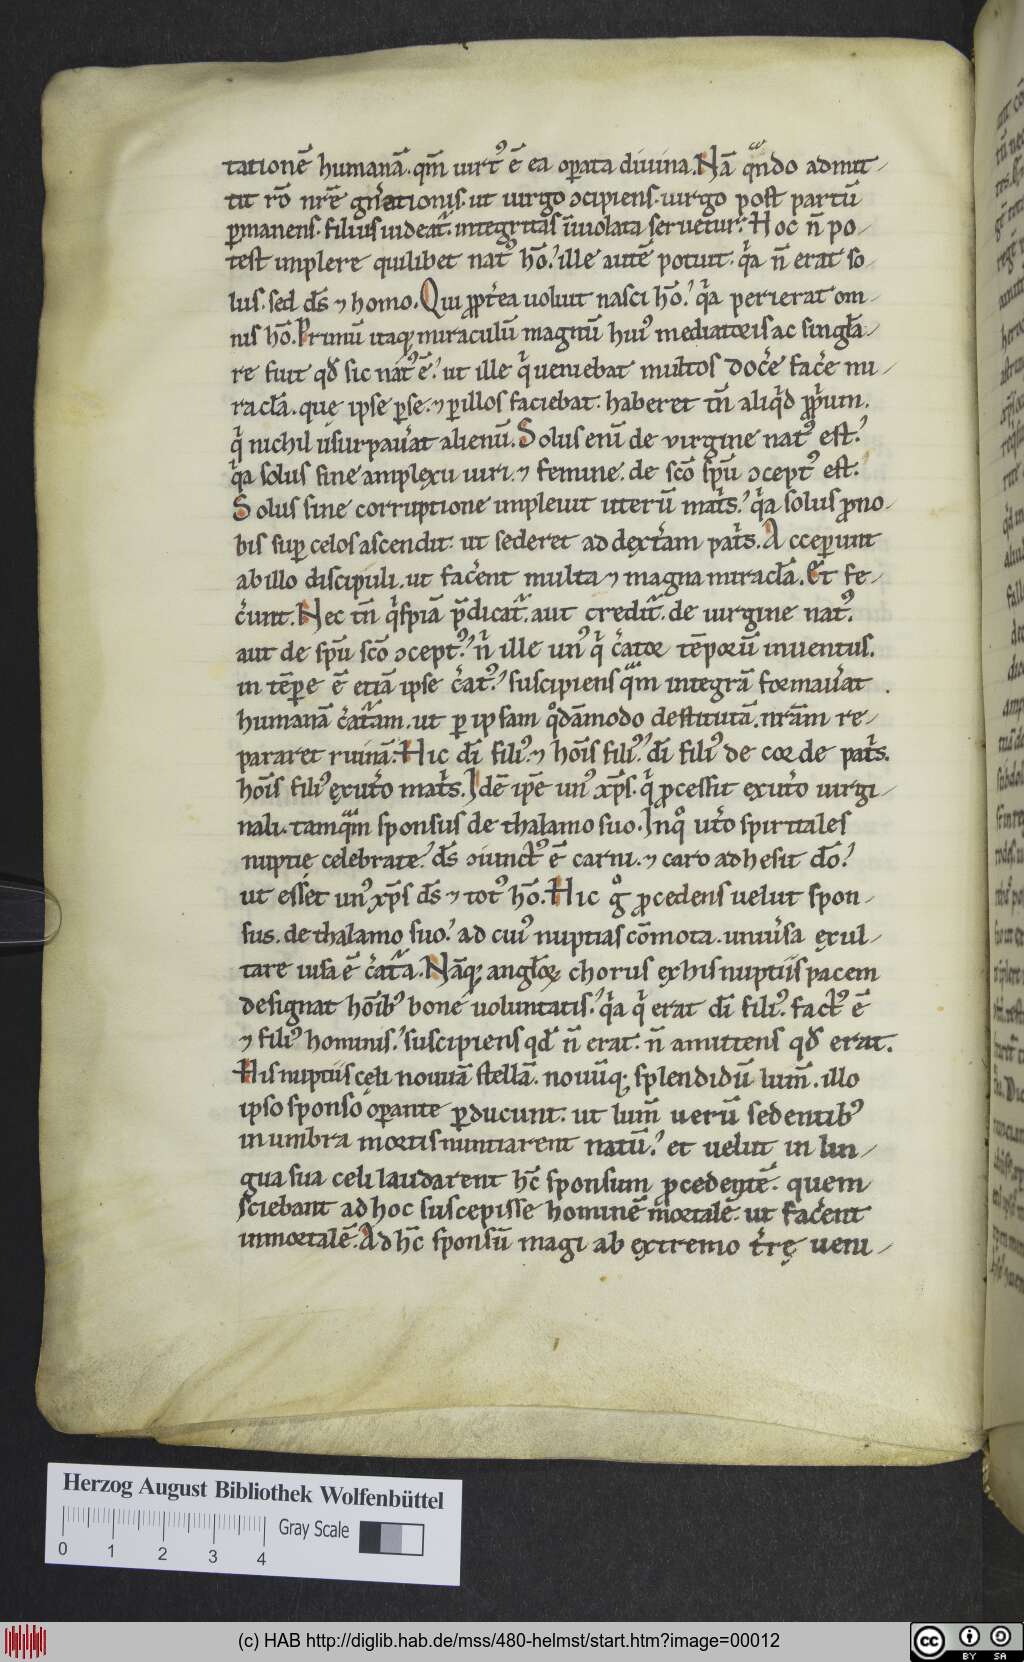 tationē humanā. qm̄ uirtꝰ ē ea oꝑata diuina. Nā qͣndo admit-
tit rō nrē gn̄ationis. ut uirgo ↄcipiens. uirgo post partū
ꝑmanens. filius uideat᷑. integritas īuiolata seruetur. Hoc n̄ po-
test implere quilibet natꝰ hō. ille autē potuit. qͥa n̄ erat so-
lus. sed d̄s ⁊ homo. Qui ꝓpt̄ea uoluit nasci hō. qͥa perierat om-
nis hō. Primū itaqꝫ miraculū magnū huiꝰ mediatoris ac singła-
re fuit qđ sic natꝰ ē. ut ille qͥ ueniebat multos doc̄e fac̄e mi-
racła. que ipse ꝑ se. ⁊ ꝑ illos faciebat. haberet tn̄ aliqͥd ꝓpͥum.
qͥ nichil usurpau̓at alienū. Solus enī de virgine natꝰ est.
qͥa solus sine amplexu uiri. ⁊ femine. de sc̄o sp̄u ↄceptꝰ est.
Solus sine corruptione impleuit uterū mat̄s. qͥa solus ꝓ no-
bis suꝑ celos ascendit. ut sederet ad dext̄am pat̄s. Acceꝑunt
ab illo discipuli. ut fac̄ent multa ⁊ magna miracła. Et fe-
c̄unt. Nec tn̄ qͥspiā p̄dicat᷑. aut credit᷑. de uirgine natꝰ.
aut de sp̄u sc̄o ↄceptꝰ. n̄ ille unꝰ qͥ c̄ator tēporū inuentus.
in tēꝑe ē etiā ipse c̄atꝰ. suscipiens qͣm integrā formau̓at
humanā c̄atͣam. ut ꝑ ipsam qͦdāmodo destitutā. nr̄am re-
pararet ruinā. Hic dī filiꝰ. ⁊ hoīs filiꝰ. dī filiꝰ de corde pat̄s.
hoīs filiꝰ ex ut̄o mat̄s. Idē ip̄e unꝰ xp̄s. qͥ ꝓcessit ex ut̄o uirgi-
nali. tamqͣm sponsus de thalamo suo. In qͦ ut̄o spiritales
nuptie celebrate. d̄s ↄiunctꝰ ē carni. ⁊ caro adhesit dō.
ut esset unꝰ xp̄s d̄s ⁊ totꝰ hō. Hic gͦ ꝓcedens uelut spon-
sus. de thalamo suo. ad cuiꝰ nuptias cōmota. uniu̓sa exul-
tare iusa ē c̄atͣa. Nāqꝫ angłoꝝ chorus ex his nuptiis pacem
designat hoībꝰ bone uoluntatis. qͥa qͥ erat dī filiꝰ. factꝰ ē
⁊ filiꝰ hominis. suscipiens qđ n̄ erat. n̄ amittens qđ erat.
His nuptiis celi nouuā stellā. nouūqꝫ splendidū lum̄. illo
ipso sponso oꝑante ꝓducunt. ut lum̄ uerū sedentibꝰ
in umbra mortis nuntiarent natū. et uelut in lin-
gua sua celi laudarent hc̄ sponsum ꝓcedentē. quem
sciebant ad hoc suscepisse hominē mortalē. ut fac̄ent
inmortalē. Ad hc̄ sponsū magi ab extremo t̄rę ueni-
Herzog August Bibliothek Wolfenbüttel
Gray Scale
0 1 2 3 4
(c) HAB http://diglib.hab.de/mss/480-helmst/start.htm?image=00012
cc BY SA